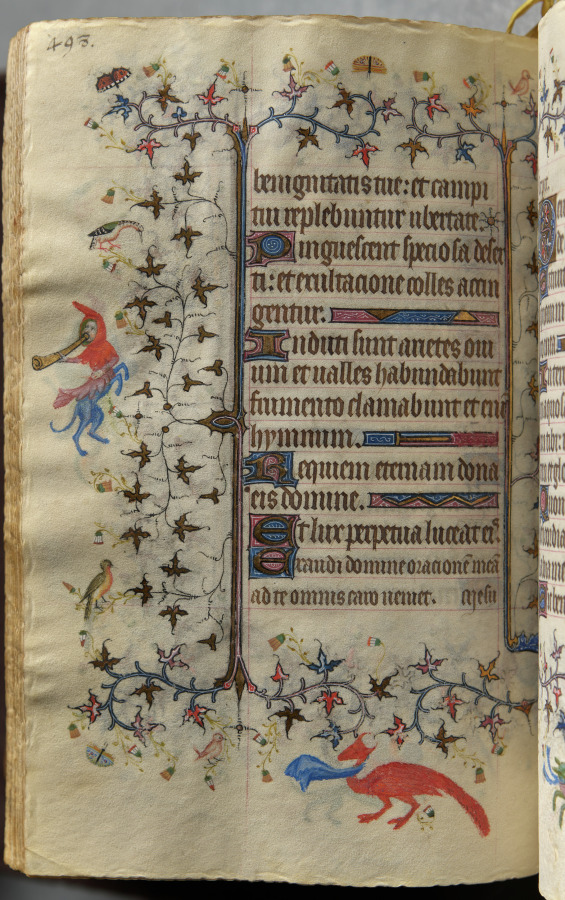 493.
benignitatis tue: et campi
tui replebuntur ubertate
Pinguescent speciosa deser
ti: et exultacione colles accin
gentur.
Induti sunt arietes oui
um et ualles habundabunt
frumento clamabunt et eni
hymnum.
Requiem eternam dona
eis domine.
Et lux perpetua luceat eis.
Exaudi domine oracionē meā
ad te omnis caro ueniet.